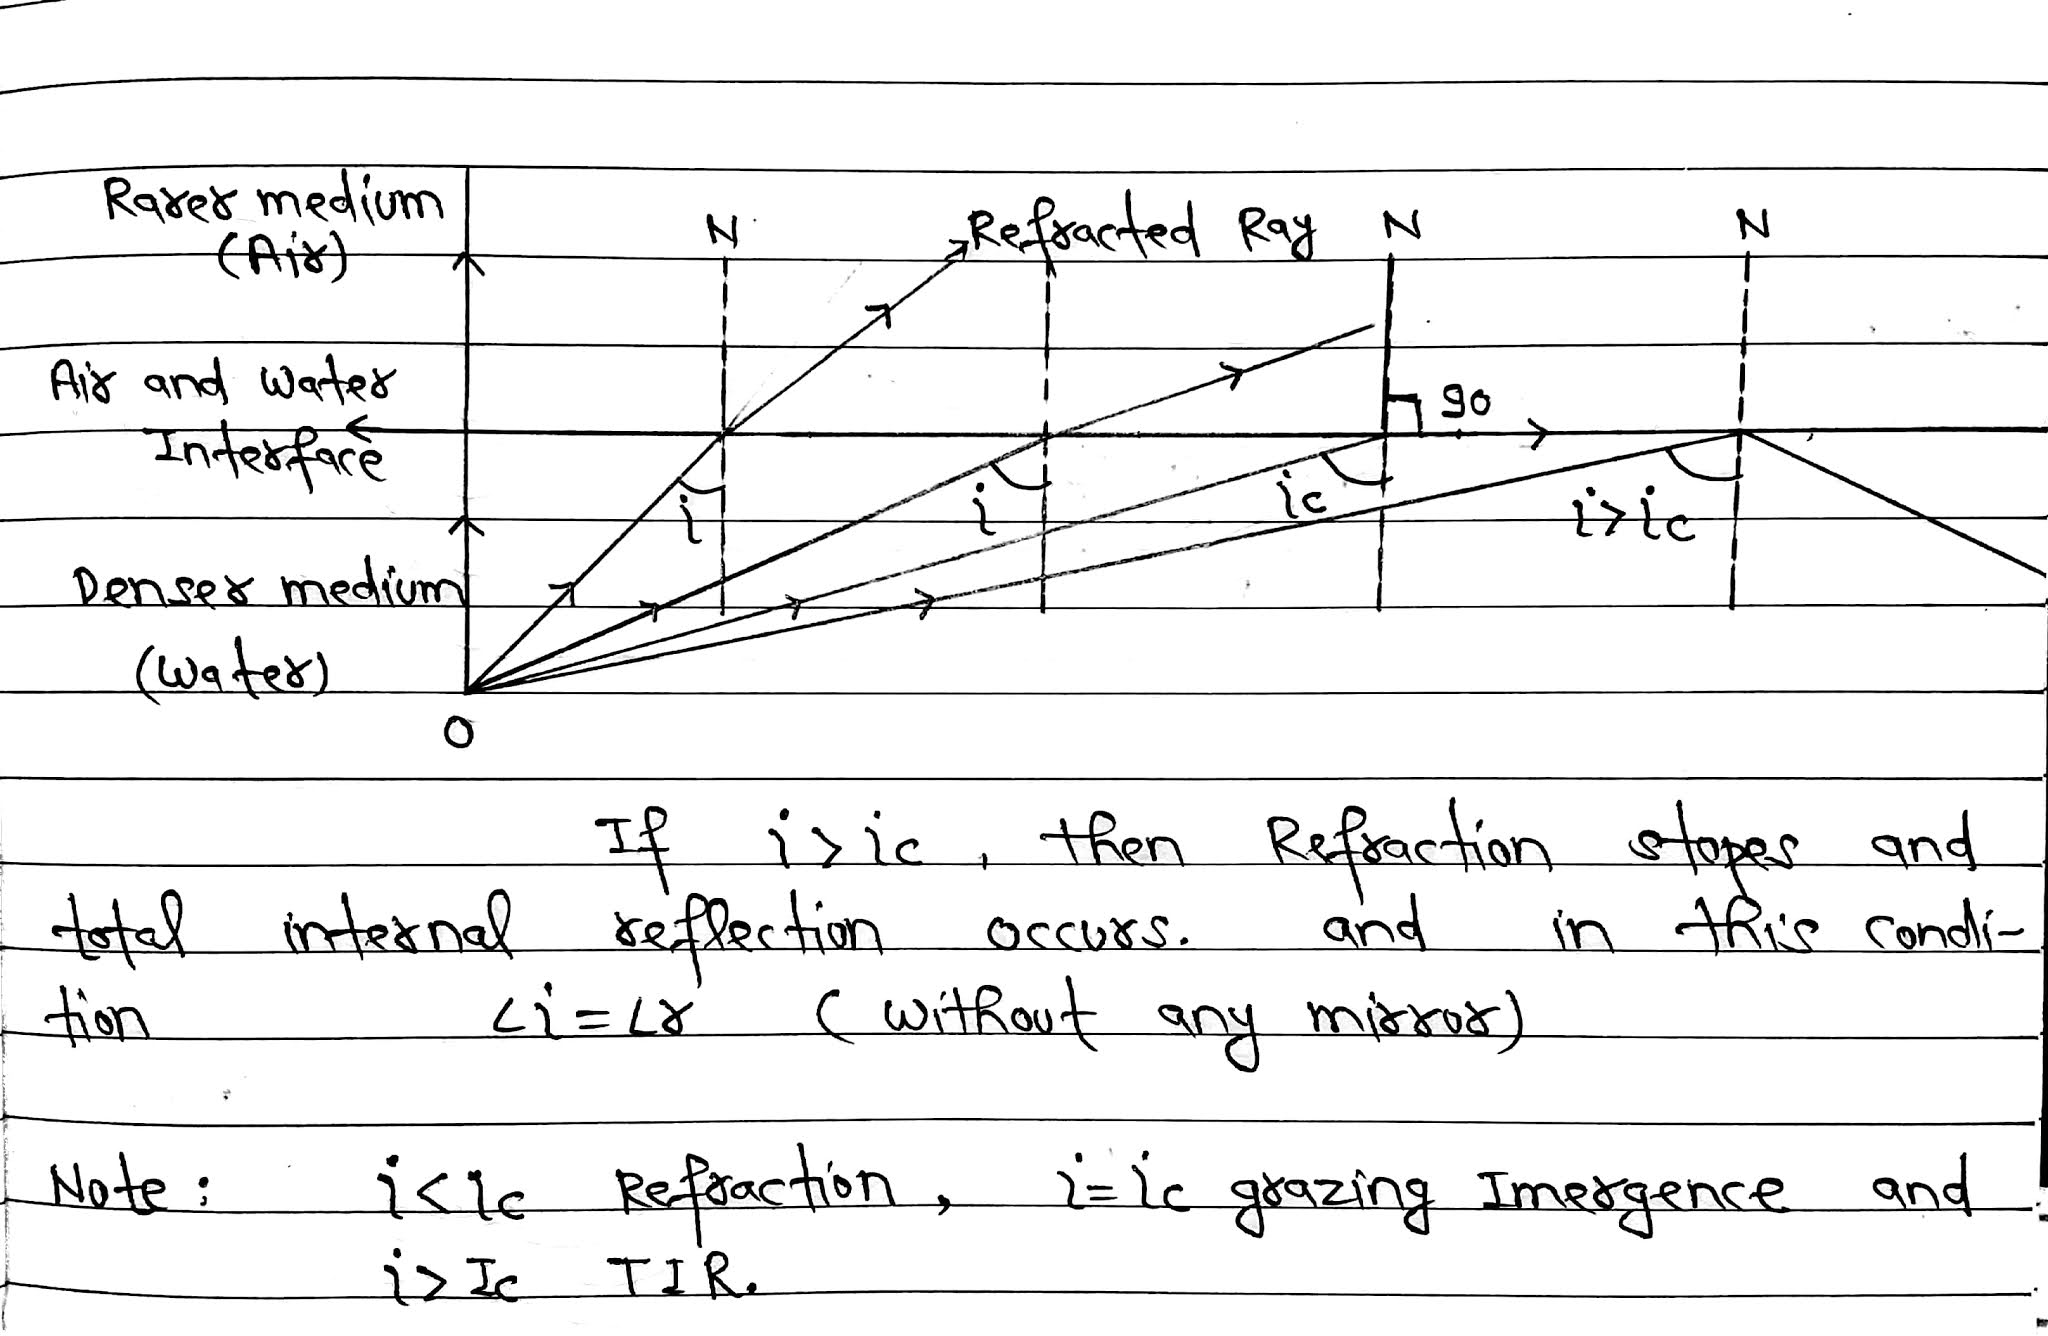 Rarer medium
(Air)
N
Refracted Ray
N
N
Air and water
Interface
90
i
i
ic
i>ic
Denser medium
(water)
O
If i>ic, then Refraction stopes and
total internal reflection occurs. and in this condi-
tion ∠i=∠r (without any mirror)
Note: i<ic Refraction, i=ic grazing Imergence and
i>Ic TIR.